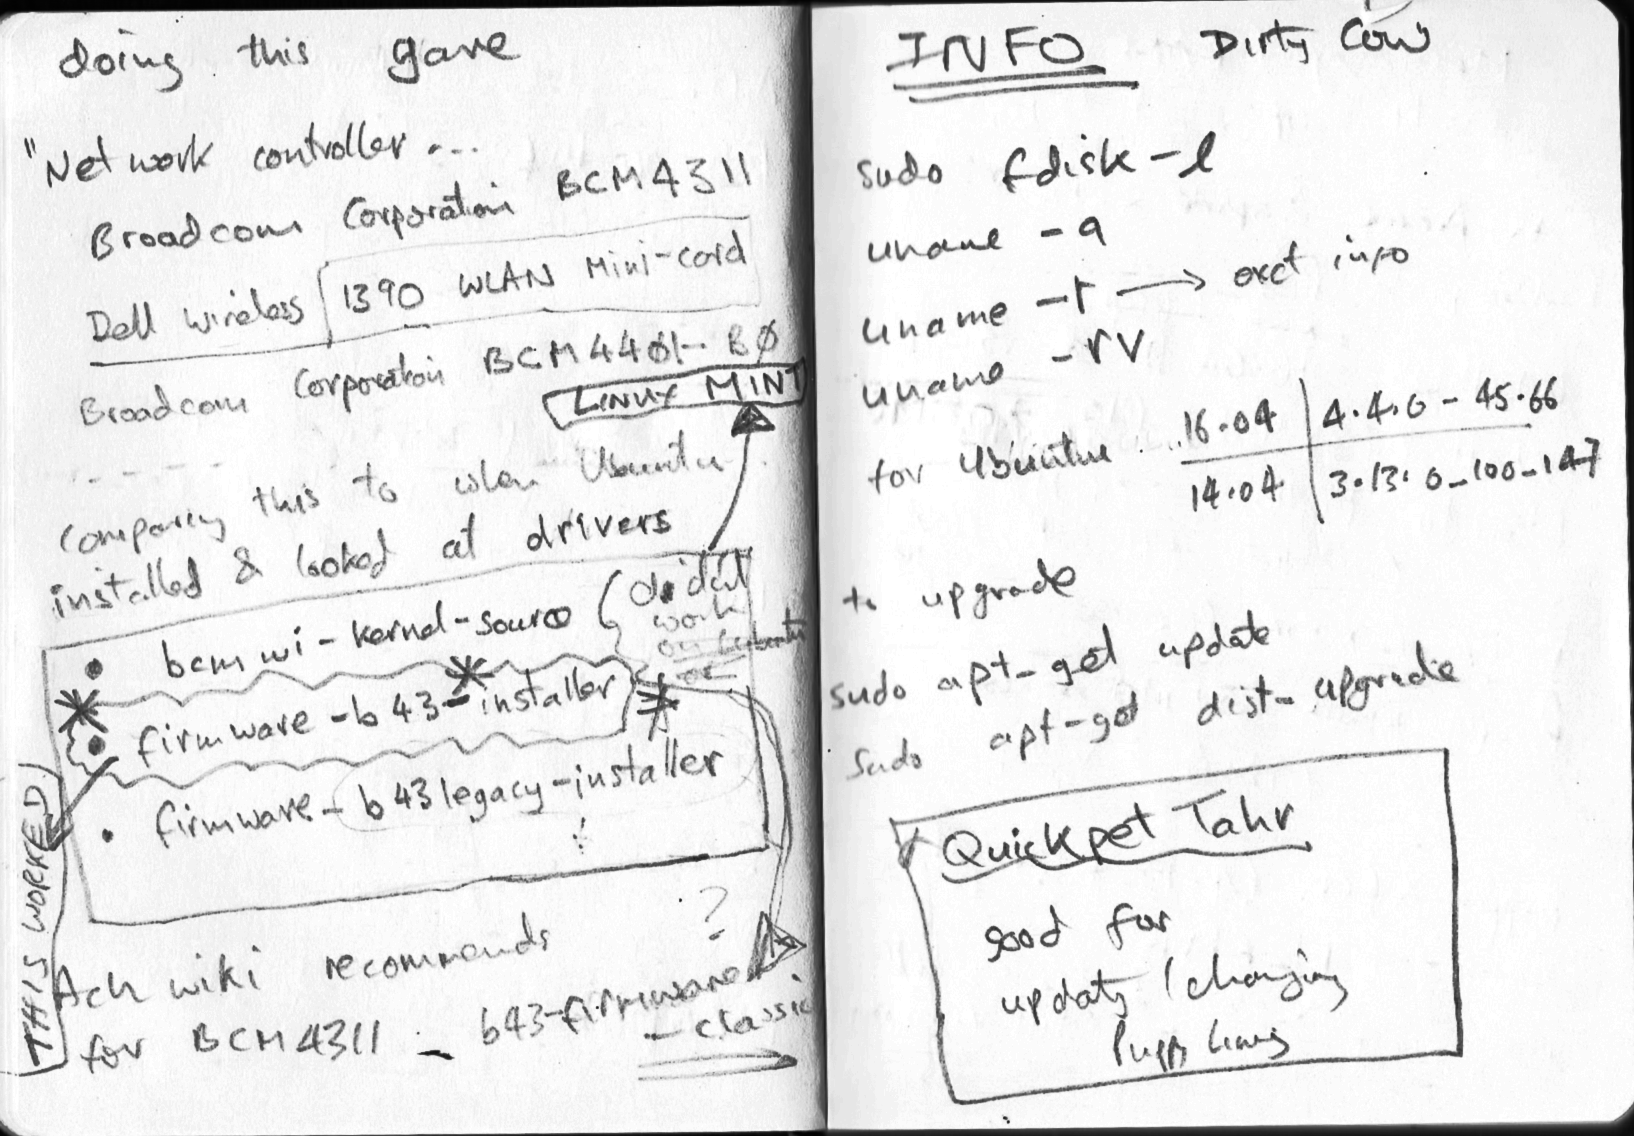 doing this gave
"Network controller ...
Broadcom Corporation BCM4311
Dell wireless 1390 WLAN Mini-card
Broadcom Corporation BCM4401-BØ
LINUX MINT
Comparing this to when Ubuntu
installed & looked at drivers
• bcmwi-kernel-source
didn't
work
on
or
• firmware-b43-installer
• firmware-b43legacy-installer
THIS WORKED
?
Ach wiki recommends
for BCM4311 - b43-firmware
- classic
INFO Dirty Cow
sudo fdisk -l
uname -a
uname -r → exct info
uname -rv
for Ubuntu 16.04 4.4.0-45.66
14.04 3.13.0-100-147
to upgrade
sudo apt-get update
sudo apt-get dist-upgrade
Quickpet Tahr
good for
updaty / changing
Puppy Linux